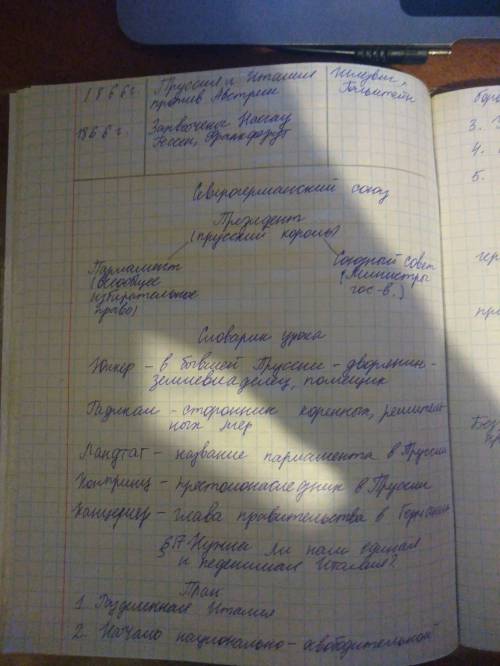 1866 г. Пруссия и Италия Шлезвиг,
против Австрии Гольштейн
1866 г. Захвачены Нассау
Гессен, Франкфурт
Северогерманский союз
Президент
(прусский король)
Парламент Союзный совет
(всеобщее (Министры
избирательное гос-в.)
право)
Словарик урока
Юнкер – в бывшей Пруссии – дворянин-
землевладелец, помещик
Радикал – сторонник коренных, решитель
ных мер
Ландтаг – название парламента в Пруссии
Кронпринц – престолонаследник в Пруссии
Канцлер – глава правительства в Германии
§17 Нужна ли нам единая
и неделимая Италия?
План
1. Разделенная Италия
2. Начало национально-освободительной
3.
4.
5.